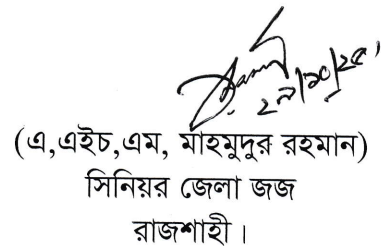 ২৭/১০/২৫
(এ,এইচ,এম, মাহমুদুর রহমান)
সিনিয়র জেলা জজ
রাজশাহী।